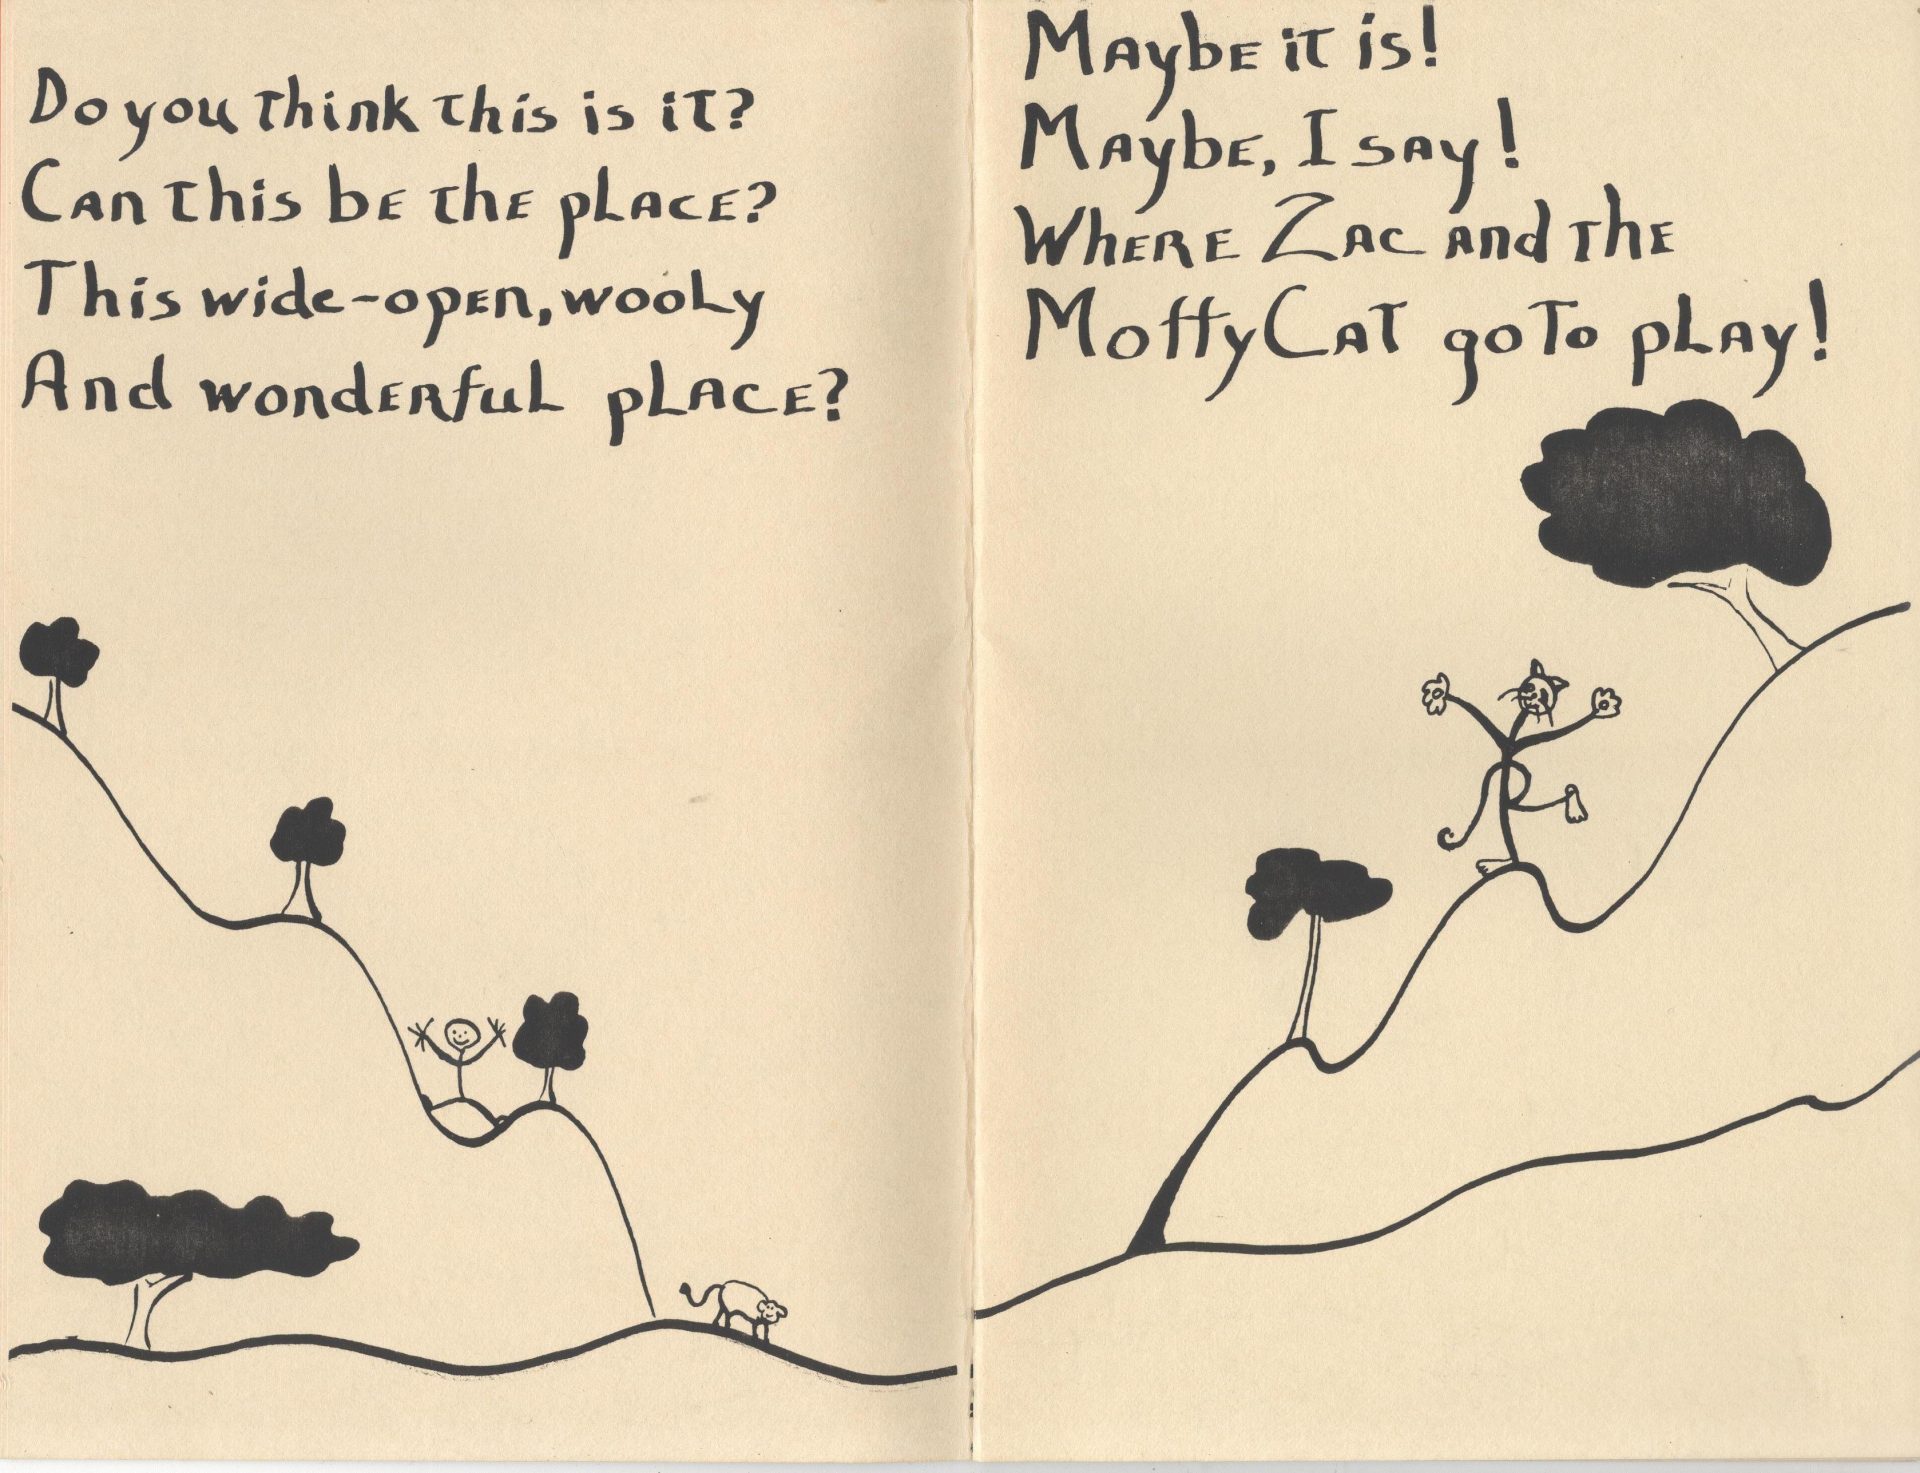 Do you think this is it?
Can this be the place?
This wide-open, wooly
And wonderful place?
Maybe it is!
Maybe, I say!
Where Zac and the
MoffyCat go to play!